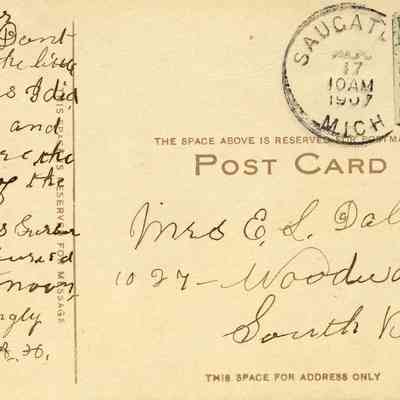 Dont
the
s I did
and
the
of the
noon
ngly
THIS SPACE IS RESERVED FOR MESSAGE
SAUGATU
17
10AM
1907
MICH
THE SPACE ABOVE IS RESERVED FOR POSTMA
POST CARD
Mrs E. L. Dal
1027 - Woodwa
South B
THIS SPACE FOR ADDRESS ONLY